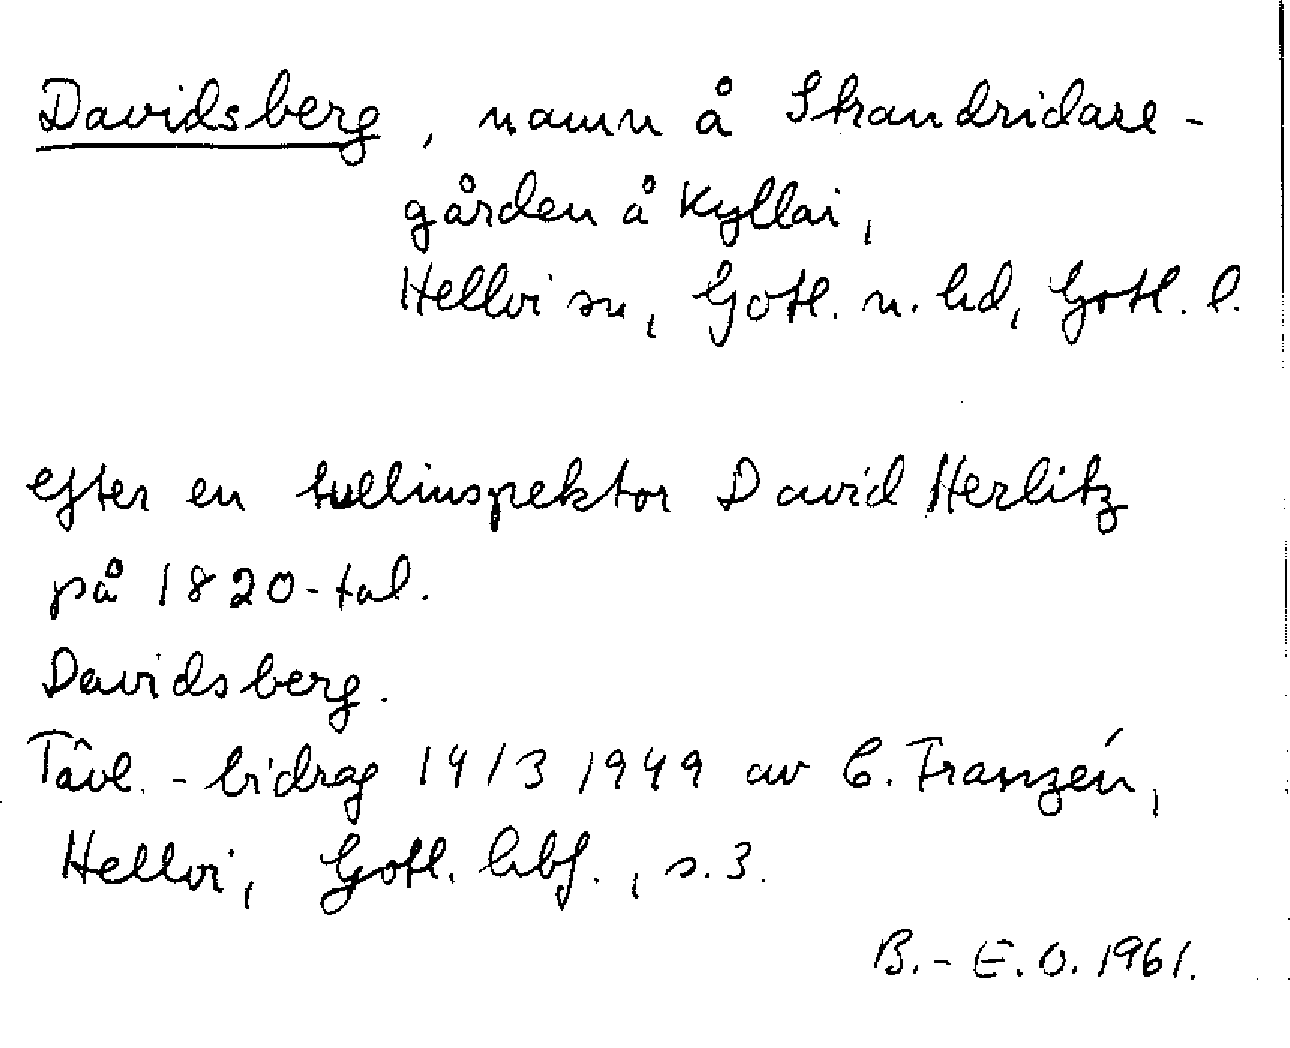 Davidsberg, namn å Strandridare-
gården å Kyllai,
Hellvi sn, Gotl. n. hd, Gotl. l.
efter en tullinspektor David Herlitz
på 1820-tal.
Davidsberg.
Tävl. - bidrag 14/3 1949 av C. Franzén,
Hellvi, Gotl. hbf., s. 3.
B.-E.O. 1961.